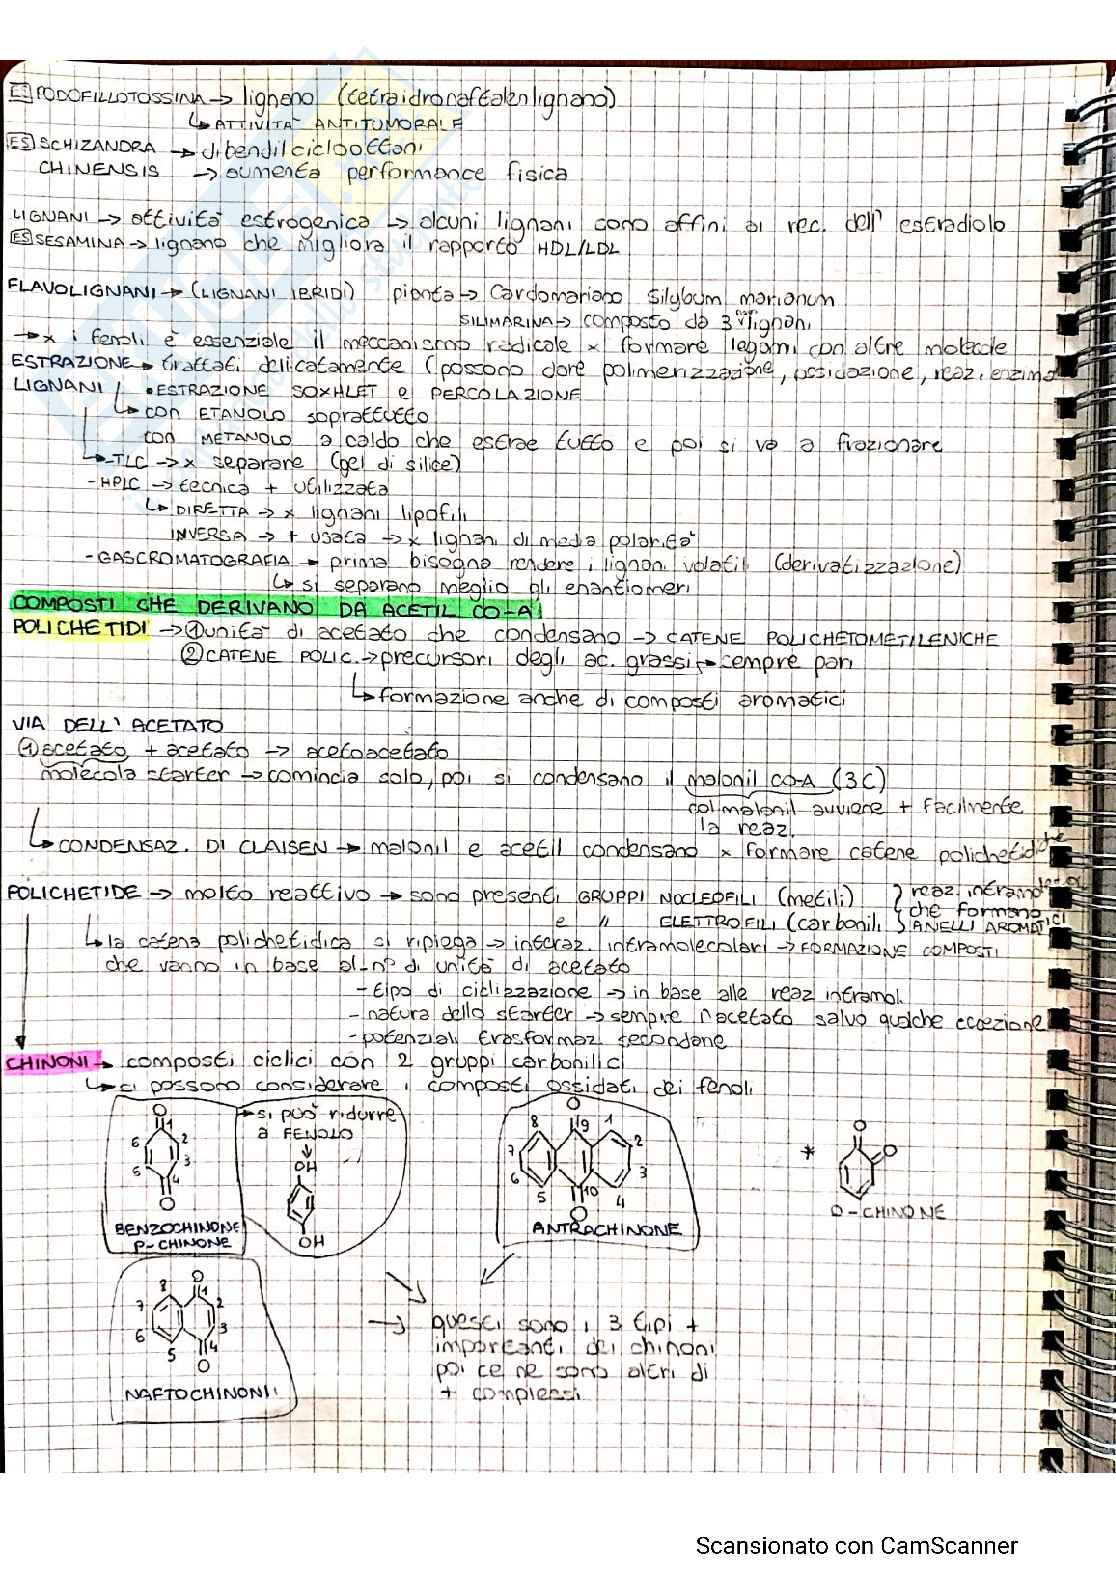 ES PODOFILLOTOSSINA → lignano (tetraidronaftalenlignano)
↳ ATTIVITA' ANTITUMORALE
ES SCHIZANDRA → dibenzilcicloottani
CHINENSIS → aumenta performance fisica
LIGNANI → attività estrogenica → alcuni lignani sono affini ai rec. dell' estradiolo
ES SESAMINA → lignano che migliora il rapporto HDL/LDL
FLAVOLIGNANI → (LIGNANI IBRIDI) pianta → Cardomariano Silybum marianum
SILIMARINA → composto da 3 lignani
→ x i fenoli è essenziale il meccanismo radicale x formare legami con altre molecole
ESTRAZIONE → trattati delicatamente (possono dare polimerizzazione, ossidazione, reaz. enzima
LIGNANI • ESTRAZIONE SOXHLET e PERCOLAZIONE
↳ con ETANOLO soprattutto
con METANOLO a caldo che estrae tutto e poi si va a frazionare
↳ -TLC → x separare (gel di silice)
-HPLC → tecnica + utilizzata
↳ DIRETTA → x lignani lipofili
INVERSA → + usata → x lignani di media polarità
-GASCROMATOGRAFIA → prima bisogna rendere i lignani volatili (derivatizzazione)
↳ si separano meglio gli enantiomeri
COMPOSTI CHE DERIVANO DA ACETIL CO-A
POLICHETIDI → ① unità di acetato che condensano → CATENE POLICHETOMETILENICHE
② CATENE POLIC. → precursori degli ac. grassi → sempre pari
↳ formazione anche di composti aromatici
VIA DELL' ACETATO
① acetato + acetato → acetoacetato
molecola starter → comincia solo, poi si condensano il malonil CO-A (3C)
col malonil avviene + facilmente
la reaz.
↳ CONDENSAZ. DI CLAISEN → malonil e acetil condensano x formare catene polichetidiche
POLICHETIDE → molto reattivo → sono presenti GRUPPI NUCLEOFILI (metili) } reaz. intramolecolari
e " ELETTROFILI (carbonili) che formano
ANELLI AROMATICI
↳ la catena polichetidica si ripiega → interaz. intramolecolari → FORMAZIONE COMPOSTI
che vanno in base al - n° di unità di acetato
- tipo di ciclizzazione → in base alle reaz intramol.
- natura dello starter → sempre l'acetato salvo qualche eccezione
- potenziali trasformaz. secondarie
CHINONI → composti ciclici con 2 gruppi carbonilici
↳ si possono considerare i composti ossidati dei fenoli
O 1 2 3 4 5 6 O
BENZOCHINONE
P-CHINONE
→ si può ridurre
a FENOLO
OH
OH
O 8 9 1 2 3 4 10 5 6 7 O
ANTRACHINONE
*
O
O
O-CHINONE
O 8 1 2 3 4 5 6 7 O
NAFTOCHINONI
→ questi sono i 3 tipi +
importanti dei chinoni
poi ce ne sono altri di
+ complessi
Scansionato con CamScanner